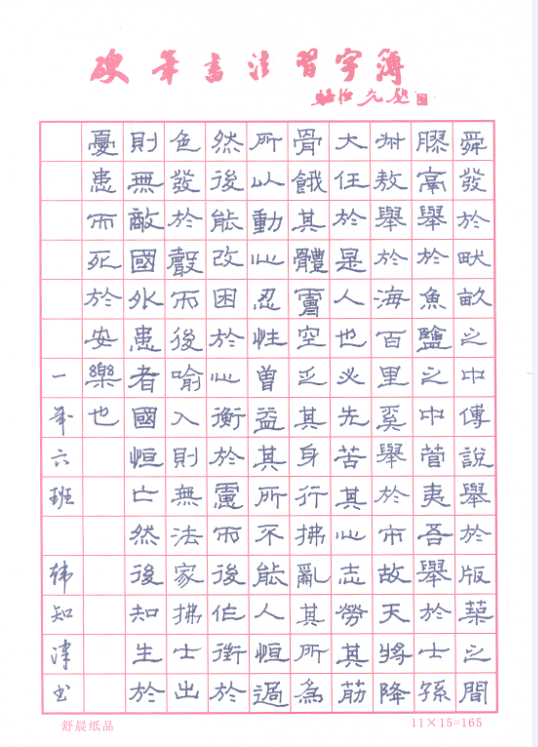 硬筆書法習字簿
舜發於畎畝之中傅說舉於版築之間
膠鬲舉於魚鹽之中管夷吾舉於士孫
叔敖舉於海百里奚舉於市故天將降
大任於是人也必先苦其心志勞其筋
骨餓其體膚空乏其身行拂亂其所為
所以動心忍性曾益其所不能人恒過
然後能改困於心衡於慮而後作徵於
色發於聲而後喻入則無法家拂士出
則無敵國外患者國恒亡然後知生於
憂患而死於安樂也
一年六班 韩知津书
舒晨纸品
11×15=165